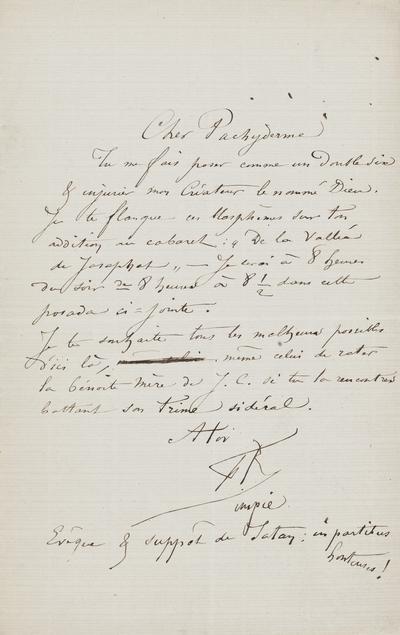 Cher Pachyderme
Tu me fais poser comme un double six
& injurier mon Créateur le nommé Dieu.
Je te flanque ces blasphèmes sur ton
addition au cabaret : „ De la Vallée
de Josaphat „ — Je serai à 8 heures
du soir de 8 heures à 8 1/2 dans cette
posada ci=jointe.
Je te souhaite tous les malheurs possibles
d'ici là, même celui de rater
la bénoite Mère de J. C. si tu la rencontres
battant son trime sidéral.
A toi
FR
impie
Evêque & suppôt de Satan : in partibus
honteuses !